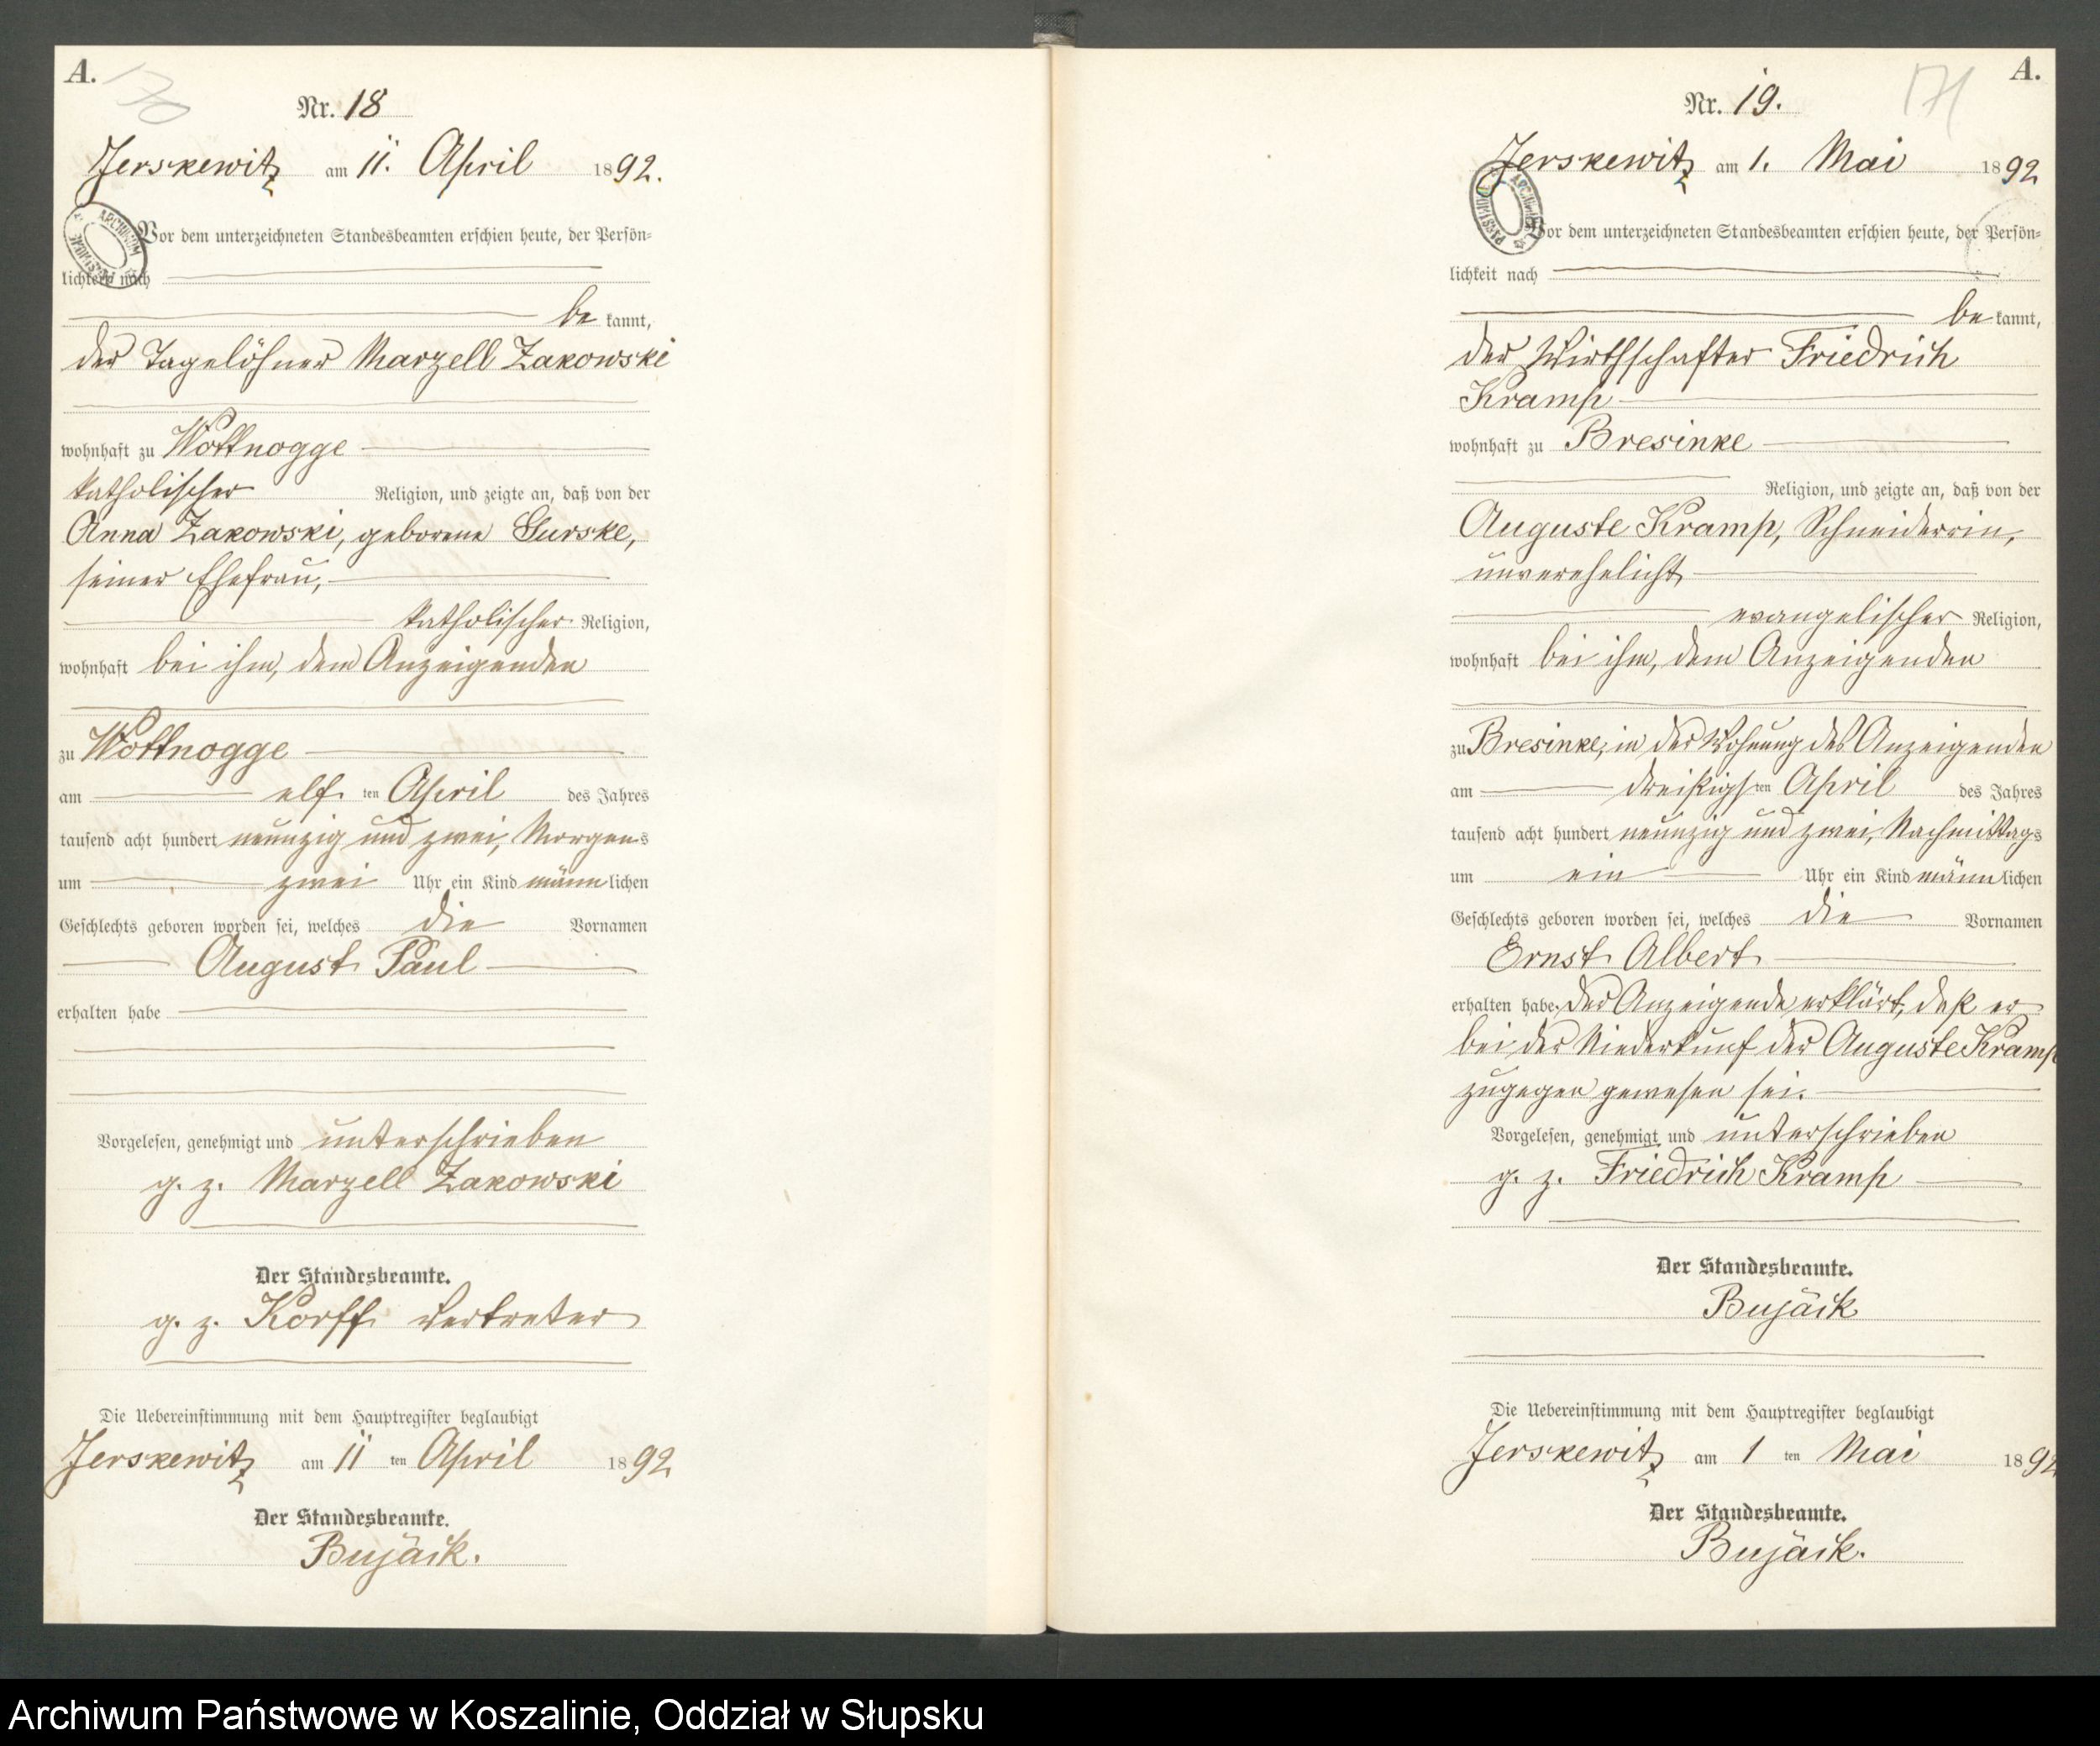 A.
Nr. 18
Jerskewitz am 11. April 1892.
Vor dem unterzeichneten Standesbeamten erschien heute, der Persön=
lichkeit nach
be kannt,
der Tagelöhner Marzell Zakowski
wohnhaft zu Wottnogge
katholischer Religion, und zeigte an, daß von der
Anna Zakowski, geborene Gurske,
seiner Ehefrau,
katholischer Religion,
wohnhaft bei ihm, dem Anzeigenden
zu Wottnogge
am elf ten April des Jahres
tausend acht hundert neunzig und zwei, Morgens
um zwei Uhr ein Kind männlichen
Geschlechts geboren worden sei, welches die Vornamen
August Paul
erhalten habe
Vorgelesen, genehmigt und unterschrieben
g. z. Marzell Zakowski
Der Standesbeamte.
g. z. Korff Vertreter
Die Uebereinstimmung mit dem Hauptregister beglaubigt
Jerskewitz am 11 ten April 1892
Der Standesbeamte.
Bujäck.
A.
171
Nr. 19.
Jerskewitz am 1. Mai 1892
Vor dem unterzeichneten Standesbeamten erschien heute, der Persön=
lichkeit nach
be kannt,
der Wirthschafter Friedrich
Kramp
wohnhaft zu Bresinke
Religion, und zeigte an, daß von der
Auguste Kramp, Schneiderrin,
unverehelicht
evangelischer Religion,
wohnhaft bei ihm, dem Anzeigenden
zu Bresinke, in der Wohnung des Anzeigenden
am dreißigsten April des Jahres
tausend acht hundert neunzig und zwei, Nachmittags
um ein Uhr ein Kind männlichen
Geschlechts geboren worden sei, welches die Vornamen
Ernst Albert
erhalten habe. Der Anzeigende erklärt, daß er
bei der Niederkunf der Auguste Kramp
zugegen gewesen sei.
Vorgelesen, genehmigt und unterschrieben
g. z. Friedrich Kramp
Der Standesbeamte.
Bujäck
Die Uebereinstimmung mit dem Hauptregister beglaubigt
Jerskewitz am 1 ten Mai 1892
Der Standesbeamte.
Bujäck.
Archiwum Państwowe w Koszalinie, Oddział w Słupsku